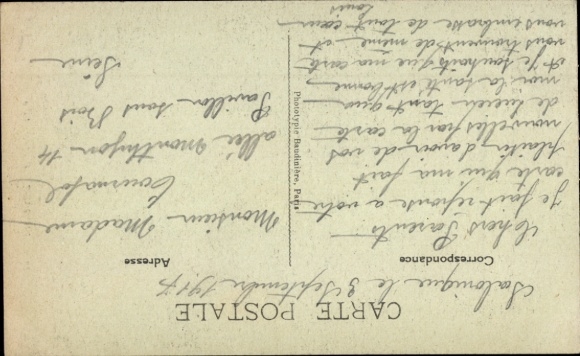 CARTE POSTALE
Salonique le 3 Septembre 1917
Correspondance
Adresse
Chers Parents
je fait réponse a votre
carte qui ma fait
plaisir d'avoir de vos
nouvelles par la carte
de Lucien tant qua
moi la santé est bonne
et je souhaits que ma carte
vous trouvent de même et
vous embrasse de tout cœur
Louis
Phototypie Baudinière, Paris
Monsieur Madame
Tournafol
allée Monthyon 14
Pavillon sous Bois
Seine